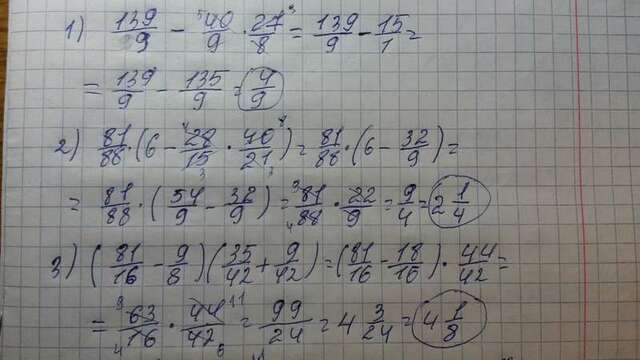 1) 139/9 - 40/9 · 27/8 = 139/9 - 15/1 =
= 139/9 - 135/9 = 4/9
2) 81/88 · (6 - 28/15 · 40/21) = 81/88 · (6 - 32/9) =
= 81/88 · (54/9 - 32/9) = 81/88 · 22/9 = 9/4 = 2 1/4
3) (81/16 - 9/8)(35/42 + 9/42) = (81/16 - 18/16) · 44/42 =
= 63/16 · 44/42 = 99/24 = 4 3/24 = 4 1/8